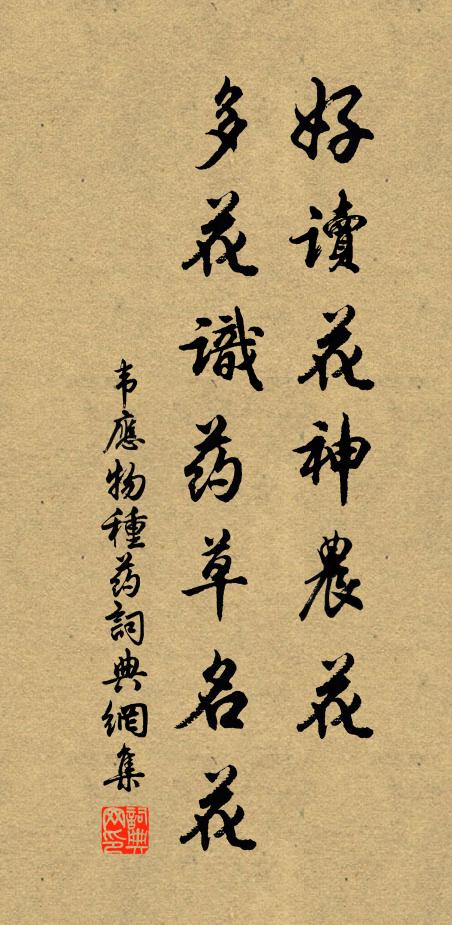 好讀花神農花
多花識药草名花
韦應物種药詞典網集
詞典网印